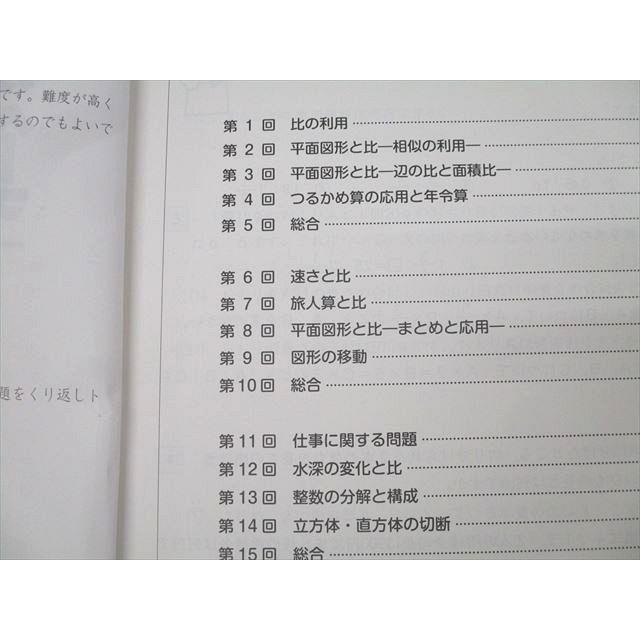 です。難度が高く
するのでもよいで
題をくり返しト
第 1 回 比の利用
第 2 回 平面図形と比―相似の利用―
第 3 回 平面図形と比―辺の比と面積比―
第 4 回 つるかめ算の応用と年令算
第 5 回 総合
第 6 回 速さと比
第 7 回 旅人算と比
第 8 回 平面図形と比―まとめと応用―
第 9 回 図形の移動
第10回 総合
第11回 仕事に関する問題
第12回 水深の変化と比
第13回 整数の分解と構成
第14回 立方体・直方体の切断
第15回 総合